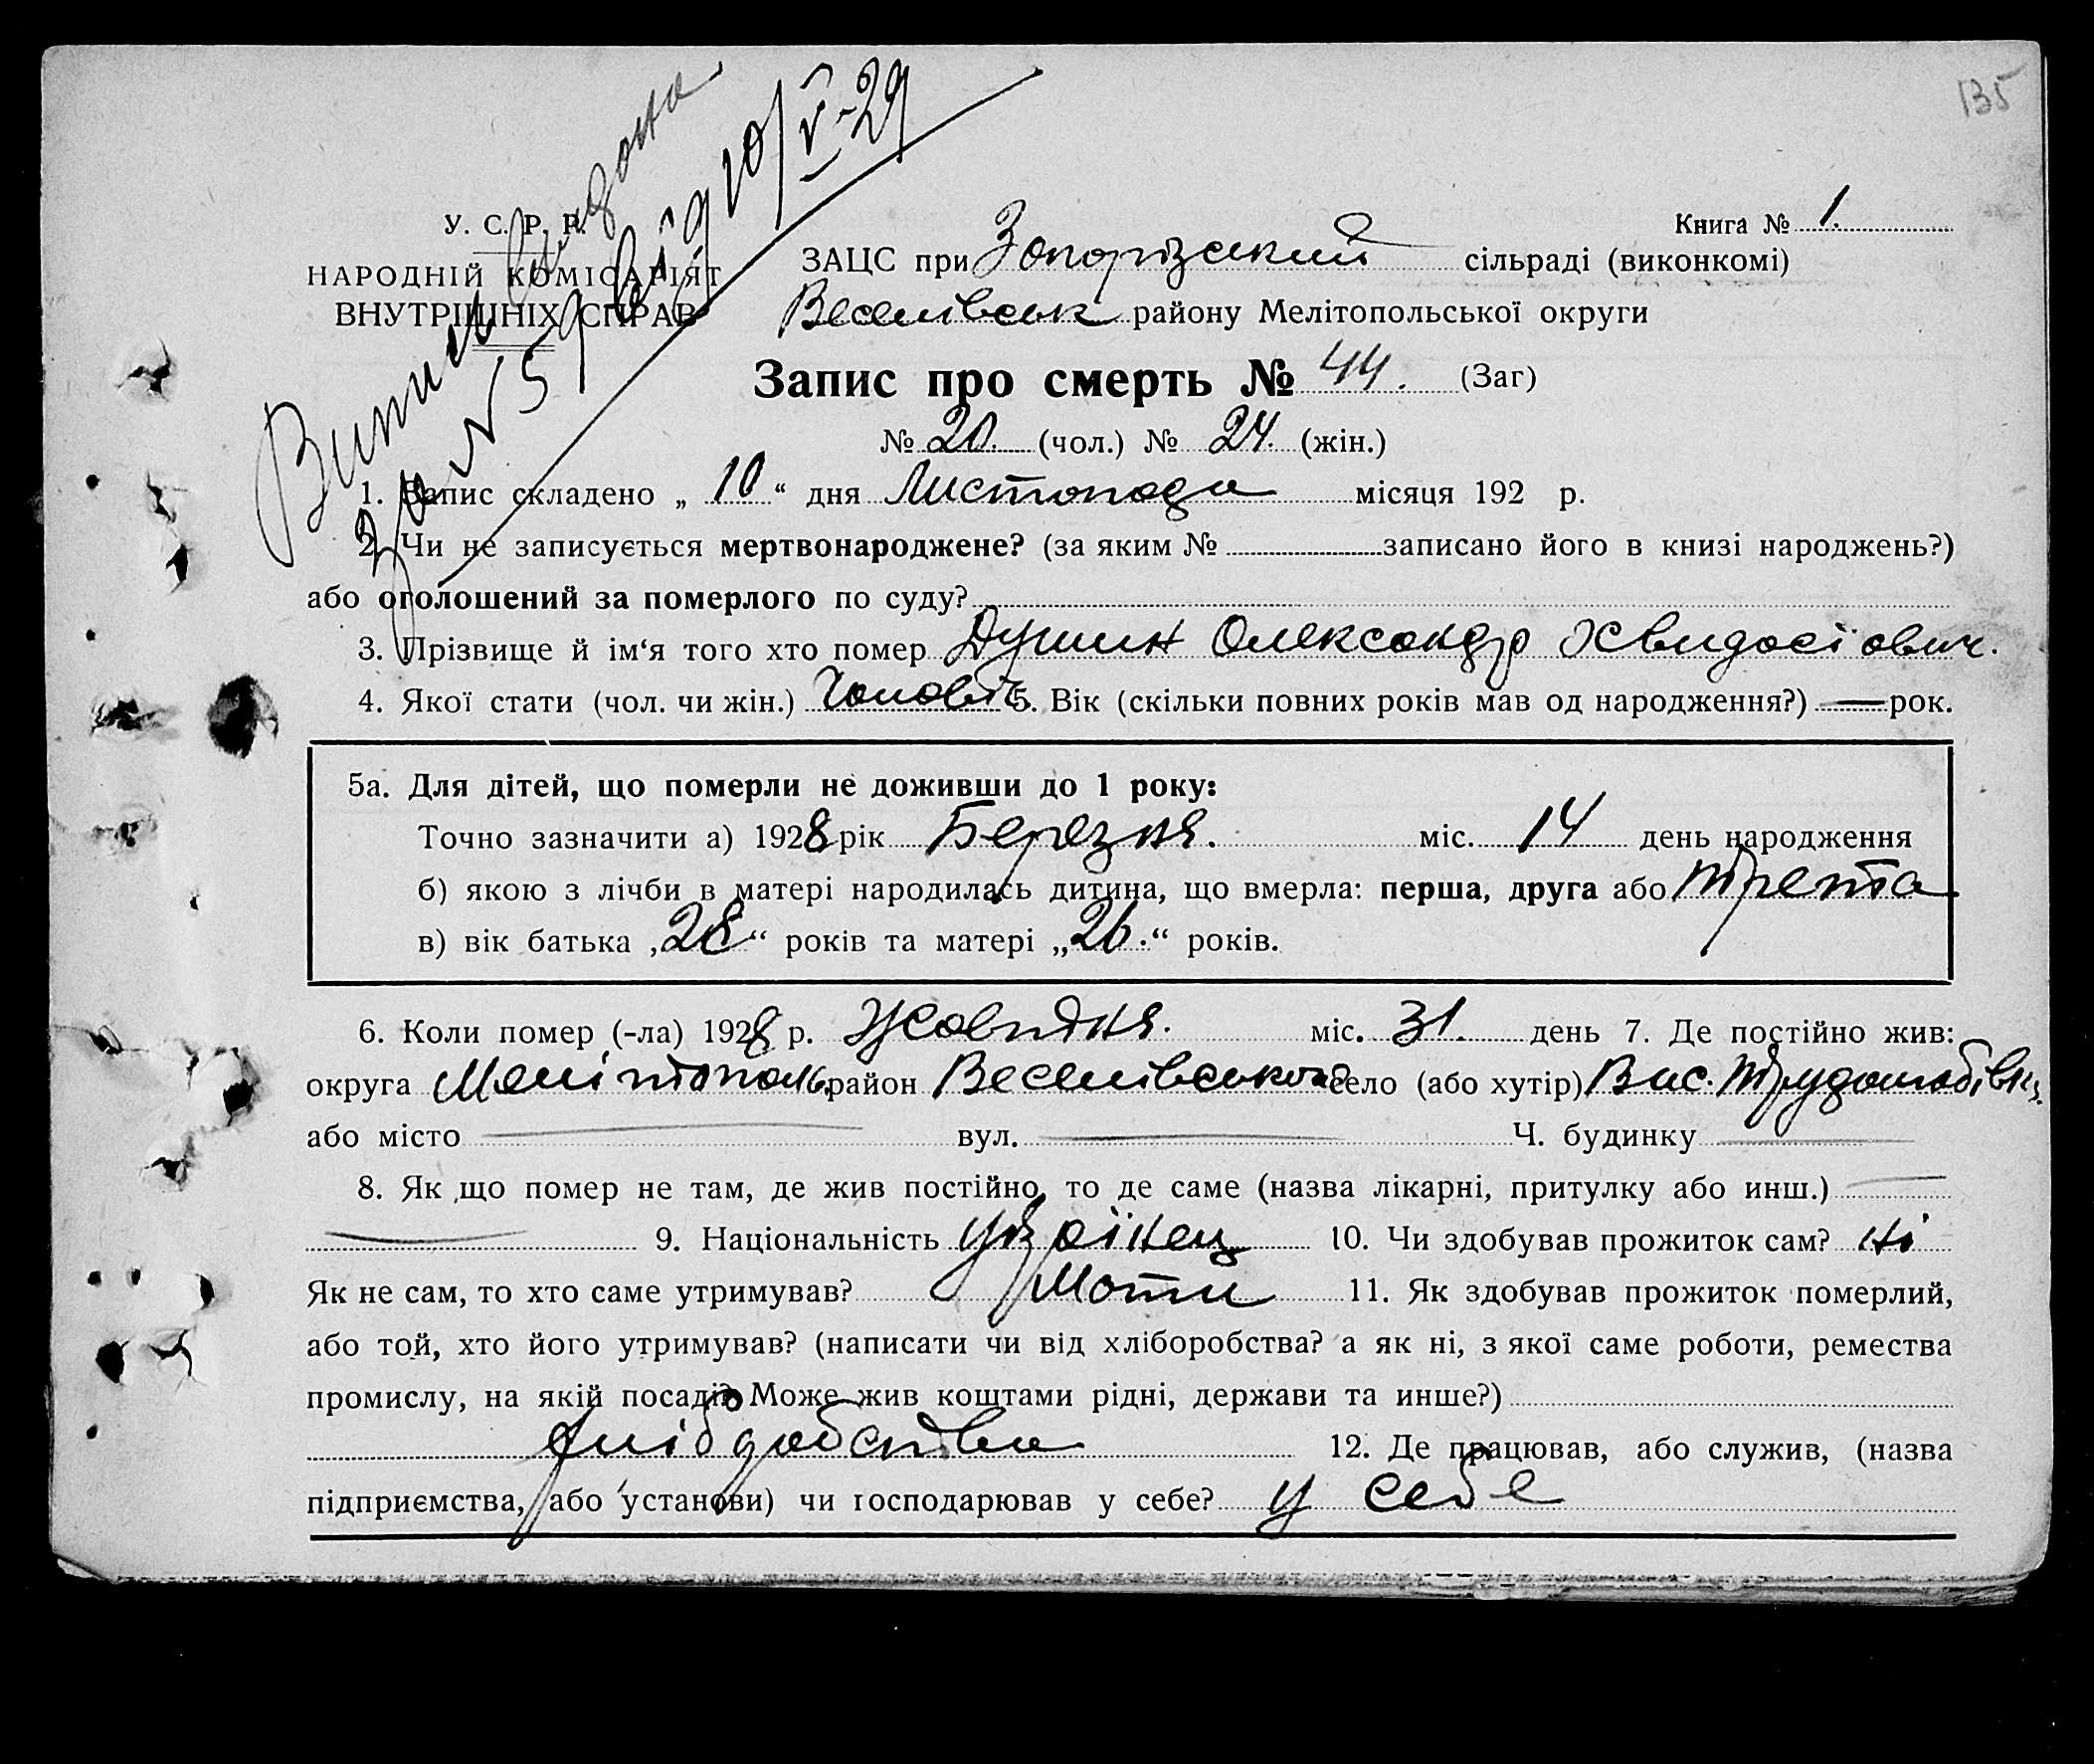 135
Випись видана
за № 59 від 10/V-29
У. С. Р. Р.
НАРОДНІЙ КОМІСАРІЯТ
ВНУТРІШНІХ СПРАВ
Книга № 1.
ЗАЦС при Запорізський сільраді (виконкомі)
Веселівськ району Мелітопольської округи
Запис про смерть № 44. (Заг)
№ 20. (чол.) № 24. (жін.)
1. Запис складено „ 10 “ дня Листопада місяця 192 р.
2. Чи не записується мертвонароджене? (за яким № записано його в книзі народжень?)
або оголошений за померлого по суду?
3. Прізвище й ім‘я того хто помер Душин Олександр
4. Якої стати (чол. чи жін.) Чоловіч 5. Вік (скільки повних років мав од народження?) — рок.
5а. Для дітей, що померли не доживши до 1 року:
Точно зазначити а) 1928 рік Березня. міс. 14 день народження
б) якою з лічби в матері народилась дитина, що вмерла: перша, друга або трета
в) вік батька „28“ років та матері „26.“ років.
6. Коли помер (-ла) 1928 р. Жовтня. міс. 31. день 7. Де постійно жив:
округа Мелітополь. район Веселівського село (або хутір) Вис.
або місто — вул. — Ч. будинку —
8. Як що помер не там, де жив постійно, то де саме (назва лікарні, притулку або инш.) —
— 9. Національність Украінец 10. Чи здобував прожиток сам? ні
Як не сам, то хто саме утримував? Мати 11. Як здобував прожиток померлий,
або той, хто його утримував? (написати чи від хліборобства? а як ні, з якої саме роботи, ремества
промислу, на якій посаді? Може жив коштами рідні, держави та инше?)
12. Де працював, або служив, (назва
підприємства, або установи) чи господарював у себе? у себе